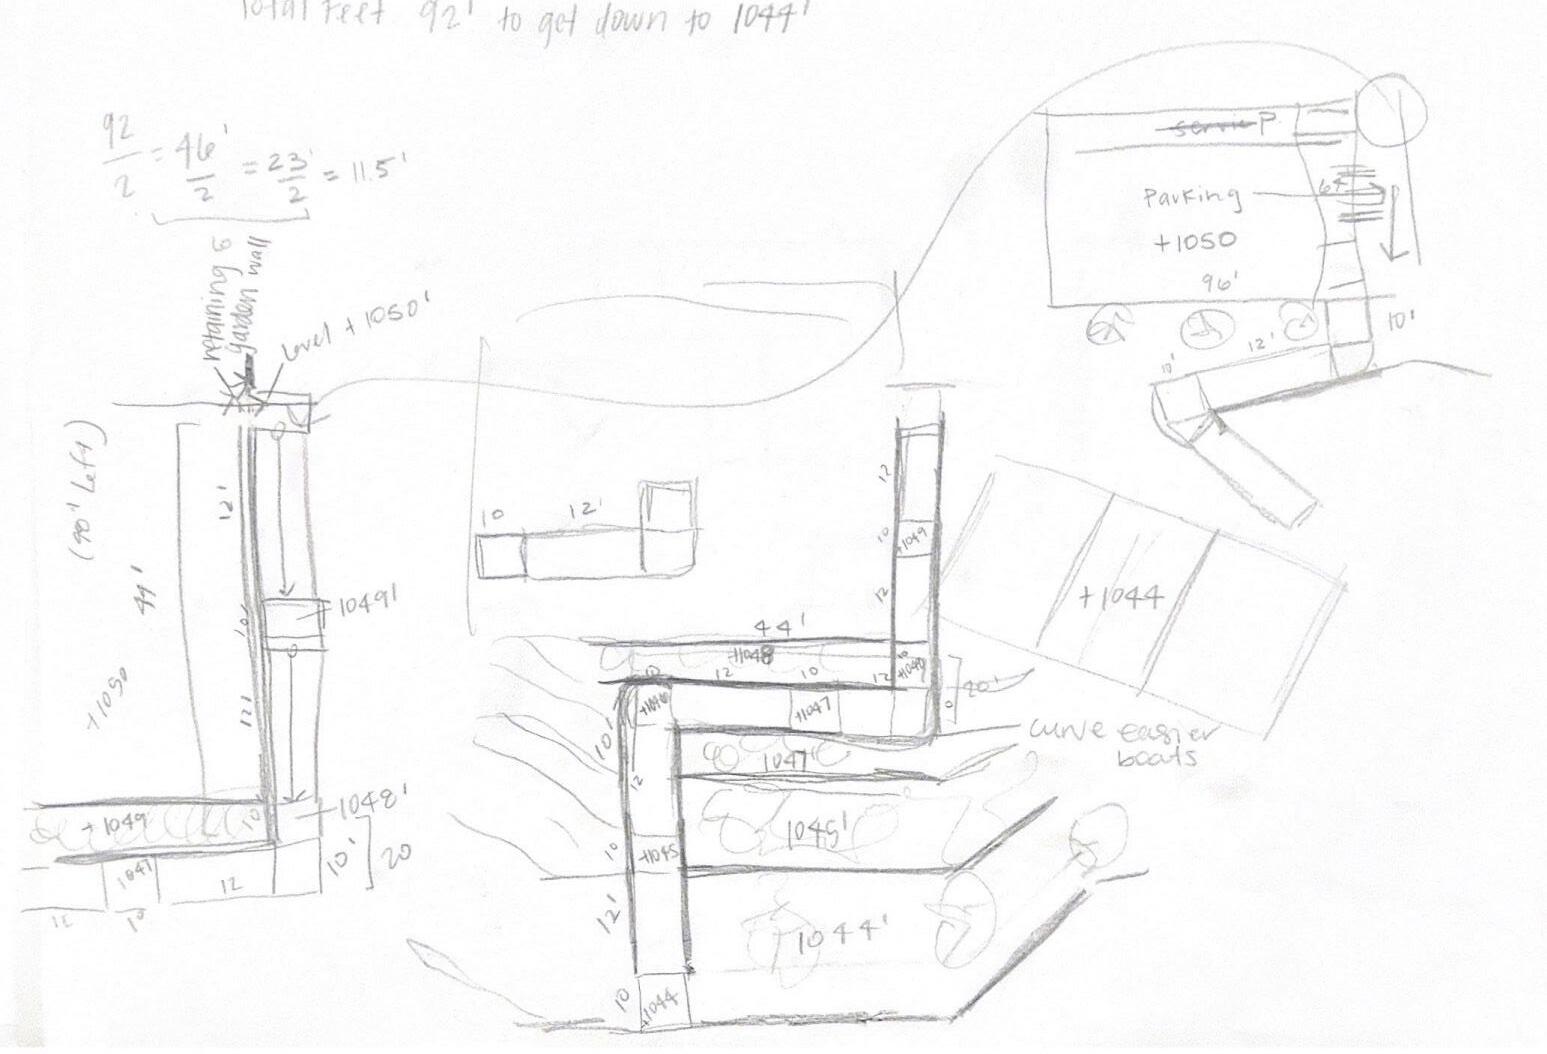 Total Feet 92' to get down to 1044'
92/2 = 46'/2 = 23'/2 = 11.5'
retaining &
garden wall
Level +1050'
(90' Left)
44'
+1050
12'
10'
12'
1049'
1048'
+1049
10
10'
20
1047
12
12
10
10
12'
44'
+1048
12
10
+1049
12
10
12
10
12
20'
+1047
10'
12
1047'
curve easier
boats
1045'
10
+1045
12'
1044'
10
+1044
servic P
Parking
+1050
96'
10'
12'
10'
+1044